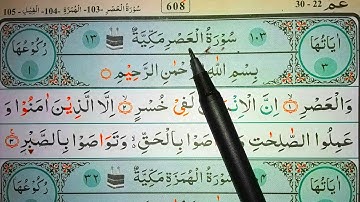 عم ٣٠ - 22 608 سُوْرَةُ الْعَصْرِ -103، الْهُمَزَةِ -104، الْفِيْلِ -105
اٰيَاتُهَا ١٠٣ سُوْرَةُ الْعَصْرِ مَكِّيَّةٌ ١٣ رُكُوْعُهَا
٣ بِسْمِ اللّٰهِ الرَّحِيْمِ ١
وَالْعَصْرِ ۙ١ اِنَّ الْاِنْسَانَ لَفِيْ خُسْرٍ ۙ٢ اِلَّا الَّذِيْنَ اٰمَنُوْا وَ
عَمِلُوا الصّٰلِحٰتِ وَتَوَاصَوْا بِالْحَقِّ ۙ وَتَوَاصَوْا بِالصَّبْرِ ٣
اٰيَاتُهَا سُوْرَةُ الْهُمَزَةِ مَكِّيَّةٌ ٣٢ رُكُوْعُهَا